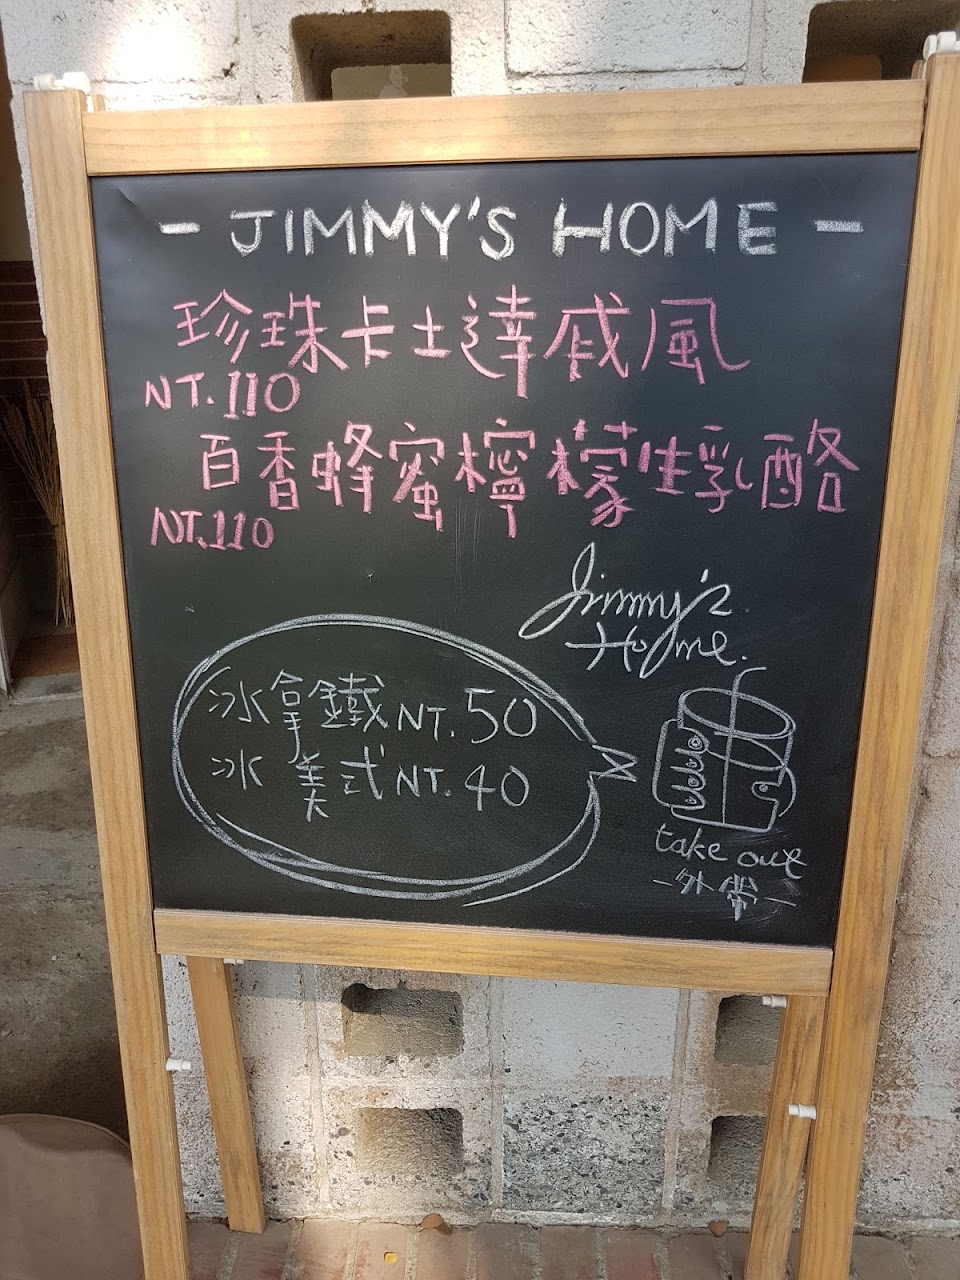 - JIMMY'S HOME -
珍珠卡士達戚風
NT.110
百香蜂蜜檸檬生乳酪
NT.110
Jimmy's
Home.
冰拿鐵NT.50
冰美式NT.40
take out
-外帶-